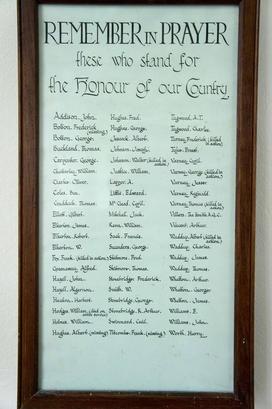 REMEMBER IN PRAYER
these who stand for
the Honour of our Country.
Addison. John.
Botton. Frederick
(missing)
Botton. George.
Buckland. Thomas.
Carpenter. George.
Chatterley. William.
Clarke. Oliver.
Coles. Ben.
Craddock. Thomas.
Elliott. Gilbert.
Elkerton. James.
Elkerton. Robert.
Elkerton. W.
Fox. Frank. (killed in action)
Greenaway. Alfred.
Hazell. John.
Hazell. Algernon.
Headon. Herbert.
Hedges. William. (died on active service)
Holmes. William.
Hughes. Albert. (missing)
Hughes. Fred.
Hughes. George.
Johnson. Joseph.
Johnson. Walter (killed in action)
Justice. William.
Little. Edward.
Mitchell. Jack.
Saunders. George.
Skidmore. Fred.
Skidmore. Thomas.
Stonebridge. Frederick.
Smith. W.
Stonebridge. George.
Stonebridge. R. Arthur.
Swinnard. Cecil.
Titcombe. Frank. (missing)
Tagwood. A.T.
Tagwood. Charles.
(killed in action)
Varney. Cyril.
Varney. George (killed in action)
Varney. Jasper
Varney. Reginald
Varney. Thomas (killed in action)
Vincent. Arthur.
Waddup. Albert (killed in action)
Waddup. Charles.
Waddup. James.
Waddup. Thomas.
Whelton. Arthur.
Whelton. George.
Whelton. James.
Williams. E.
Williams. John.
Worth. Harry.